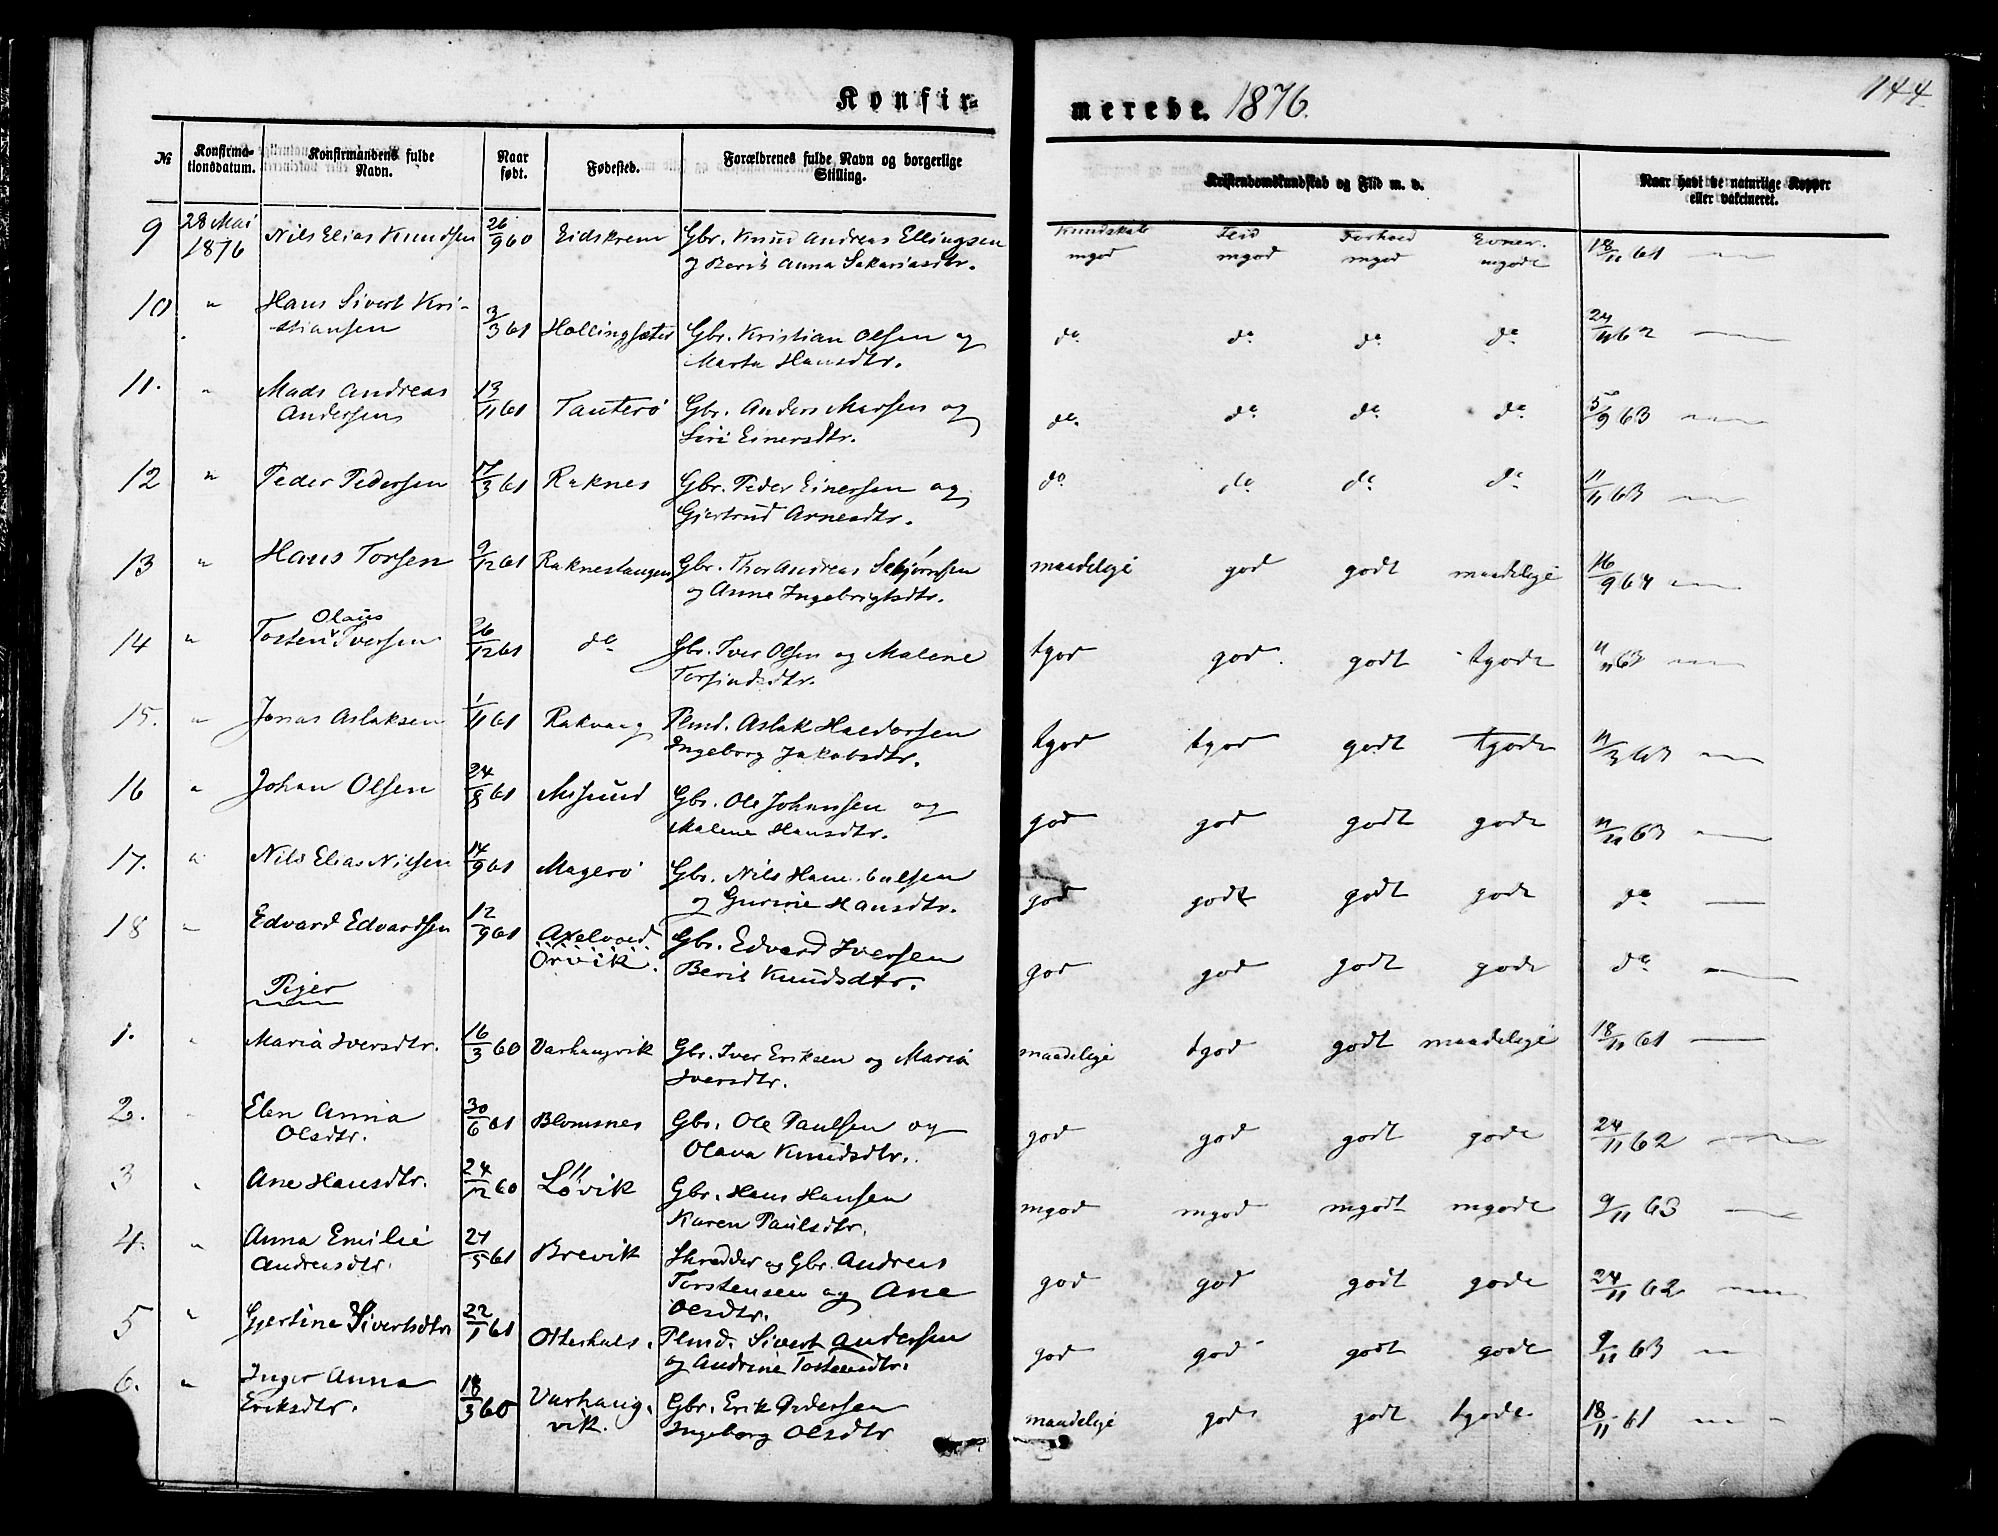 Konfir-
merede. 1876.
144
№ Konfirma-tionsdatum. Konfirmandens fulde Navn. Naar født. Fødested. Forældrenes fulde Navn og borgerlige Stilling. Kristendomskundskab og Flid m. v. Naar havt de naturlige Kopper eller vakcineret.
Kundskab Flid Forhold Evner
9 28 Mai 1876 Nils Elias Knudsen 26/9 60 Eidskrem Gbr. Knud Andreas Ellingsen mgod mgod mgod mgode 18/11 61
og Berit Anna Sakariasdtr.
10 " Hans Sivert Kri-
stiansen 3/3 61 Hollingsæter Gbr. Kristian Olsen og do do do do 24/11 62
Marta Hansdtr.
11. " Mads Andreas
Andersen 13/11 61 Tauterö Gbr. Anders Madsen og do do do do 5/9 63
Siri Einersdtr.
12 " Peder Pedersen 17/3 61 Raknes Gbr. Peder Einersen og do do do do 11/11 63
Gjertrud Arnesdtr.
13 " Hans Torsen 9/12 61 Raknestangen Gbr. Thor Andreas maadelige god godt maadelige 16/9 64
og Anne Ingebrigtsdtr.
Olaus
14 " Tosten Iversen 26/12 61 do Gbr. Iver Olsen og Malene tgod god godt tgode 11/11 63
Torfindsdtr.
15. " Jonas Aslaksen 1/11 61 Rakvaag Plmd. Aslak Haldorsen tgod tgod godt tgode 11/3 63
Ingeborg Jakobsdtr.
16 " Johan Olsen 24/8 61 Misund Gbr. Ole Johansen og god god godt gode 11/11 63
Malene Hansdtr.
17. " Nils Elias Nilsen 14/9 61 Magerö Gbr. Nils god godt godt gode do
og Gurine Hansdtr.
18 " Edvard Edvardsen 12/9 61 Axelvold Gbr. Edvard Iversen god god godt gode do
Örvik. Berit Knudsdtr.
Piger
1. " Maria Iversdtr. 16/3 60 Varhaugvik Gbr. Iver Eriksen og Maria maadelige tgod godt maadelige 18/11 61
Iversdtr.
2. " Elen Anna
Olsdtr. 30/6 61 Blomsnes Gbr. Ole Paulsen og god god godt gode 24/11 62
Olava Knudsdtr.
3 " Ane Hansdtr. 24/12 60 Lövik Gbr. Hans Hansen mgod mgod mgodt mgode 9/11 63
Karen Paulsdtr.
4. " Anna Emilie
Andreasdtr. 21/5 61 Brevik Skredder og Gbr. Andreas god god godt gode 24/11 62
Torstensen og Ane
Olsdtr.
5 " Gjertine Sivertsdtr 22/1 61 Otterhals. Plmd. Sivert Andersen god god godt gode 9/11 63
og Andrine Tostensdtr.
6. " Inger Anna
Eriksdtr. 18/3 60 Varhaug-
vik. Gbr. Erik Pedersen maadelige god godt tgode 18/11 61
Ingeborg Olsdtr